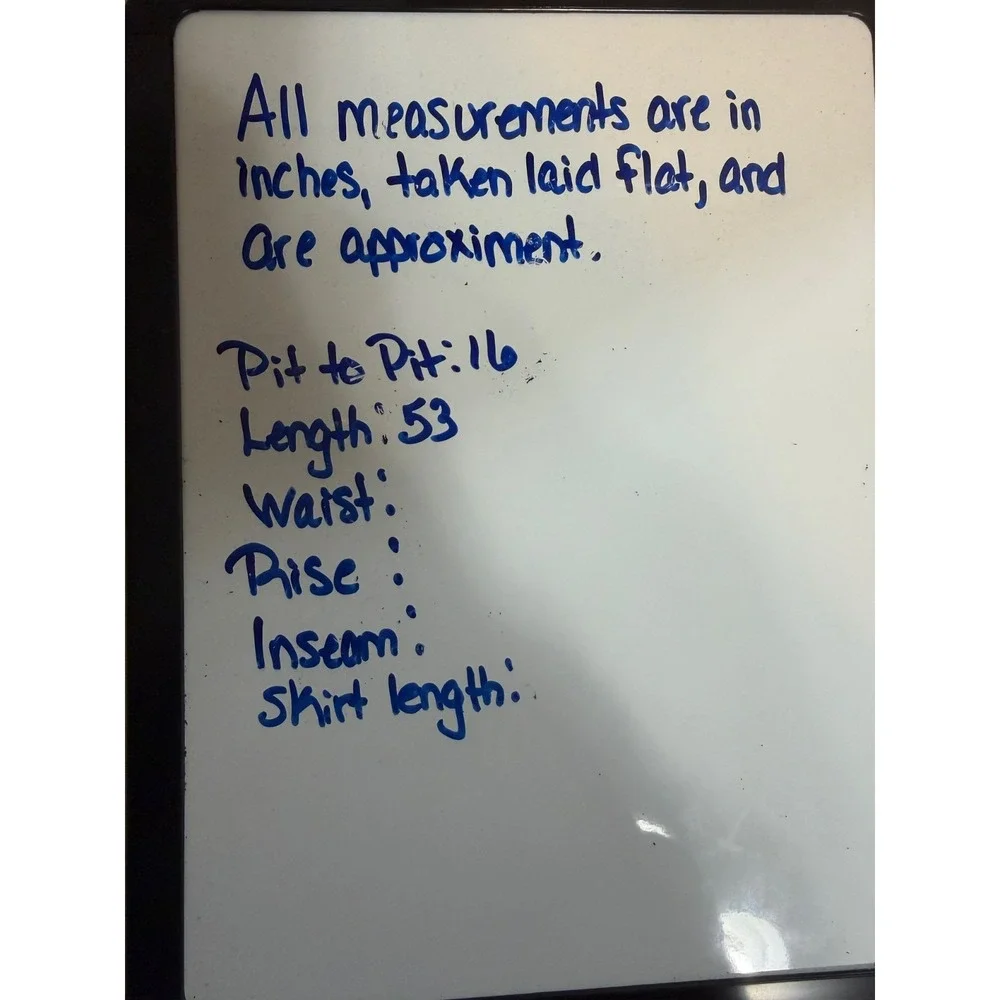 All measurements are in
inches, taken laid flat, and
are approximent.
Pit to Pit: 16
Length: 53
Waist:
Rise :
Inseam:
Skirt length: